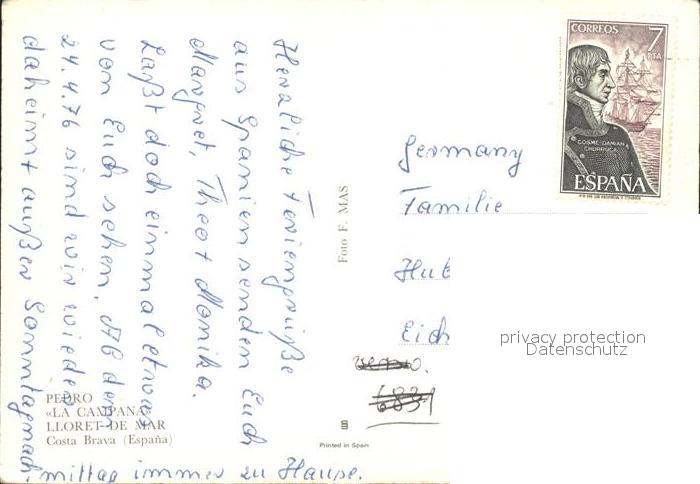 Herzliche Feriengrüße
aus Spanien senden Euch
Margret, Theo + Monika.
Laßt doch einmal etwas
von Euch sehen. Ab dem
24.4.76 sind wir wieder
daheim + außer Sonntagnach,
mittag immer zu Hause.
PEDRO
«LA CAMPANA»
LLORET DE MAR
Costa Brava (España)
Foto F. MAS
Printed in Spain
CORREOS 7
PTA
COSME DAMIAN
CHURRUCA
ESPAÑA
Germany
Familie
Hub
Eich
6831
privacy protection
Datenschutz